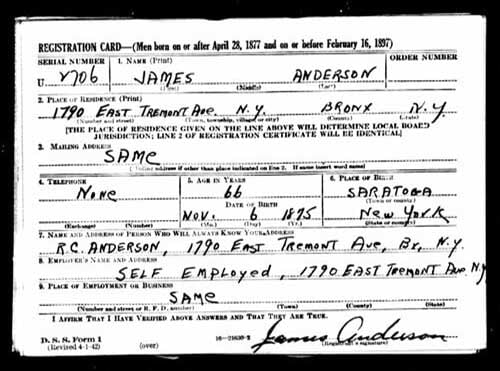 REGISTRATION CARD—(Men born on or after April 28, 1877 and on or before February 16, 1897)
SERIAL NUMBER 1. NAME (Print) ORDER NUMBER
U 2706 JAMES ANDERSON
(First) (Middle) (Last)
2. PLACE OF RESIDENCE (Print)
1790 EAST TREMONT Ave N.Y. BRONX N.Y.
(Number and street) (Town, township, village, or city) (County) (State)
[THE PLACE OF RESIDENCE GIVEN ON THE LINE ABOVE WILL DETERMINE LOCAL BOARD
JURISDICTION; LINE 2 OF REGISTRATION CERTIFICATE WILL BE IDENTICAL]
3. MAILING ADDRESS
SAME
(Mailing address if other than place indicated on line 2. If same insert word same)
4. TELEPHONE 5. AGE IN YEARS 6. PLACE OF BIRTH
NONE 66 SARATOGA
DATE OF BIRTH (Town or county)
NOV. 6 1875 New York
(Exchange) (Number) (Mo.) (Day) (Yr.) (State or country)
7. NAME AND ADDRESS OF PERSON WHO WILL ALWAYS KNOW YOUR ADDRESS
R.C. ANDERSON, 1790 EAST TREMONT Ave, Bx, N.Y.
8. EMPLOYER'S NAME AND ADDRESS
SELF EMPLOYED, 1790 EAST TREMONT Ave N.Y
9. PLACE OF EMPLOYMENT OR BUSINESS
SAME
(Number and street or R. F. D. number) (Town) (County) (State)
I AFFIRM THAT I HAVE VERIFIED ABOVE ANSWERS AND THAT THEY ARE TRUE.
James Anderson
D. S. S. Form 1 (Registrant's signature)
(Revised 4-1-42) (over) 16—21630-2